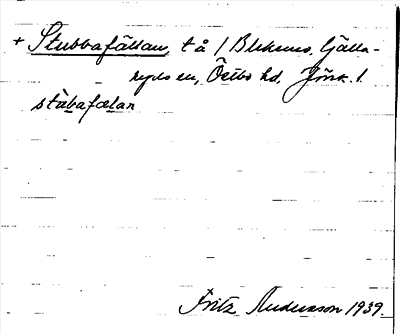 + Stubbafällan, t å 1 Blekemo, Gälla-
ryds sn, Östbo hd, Jönk. l.
stùbafælan
Fritz Andersson 1939.